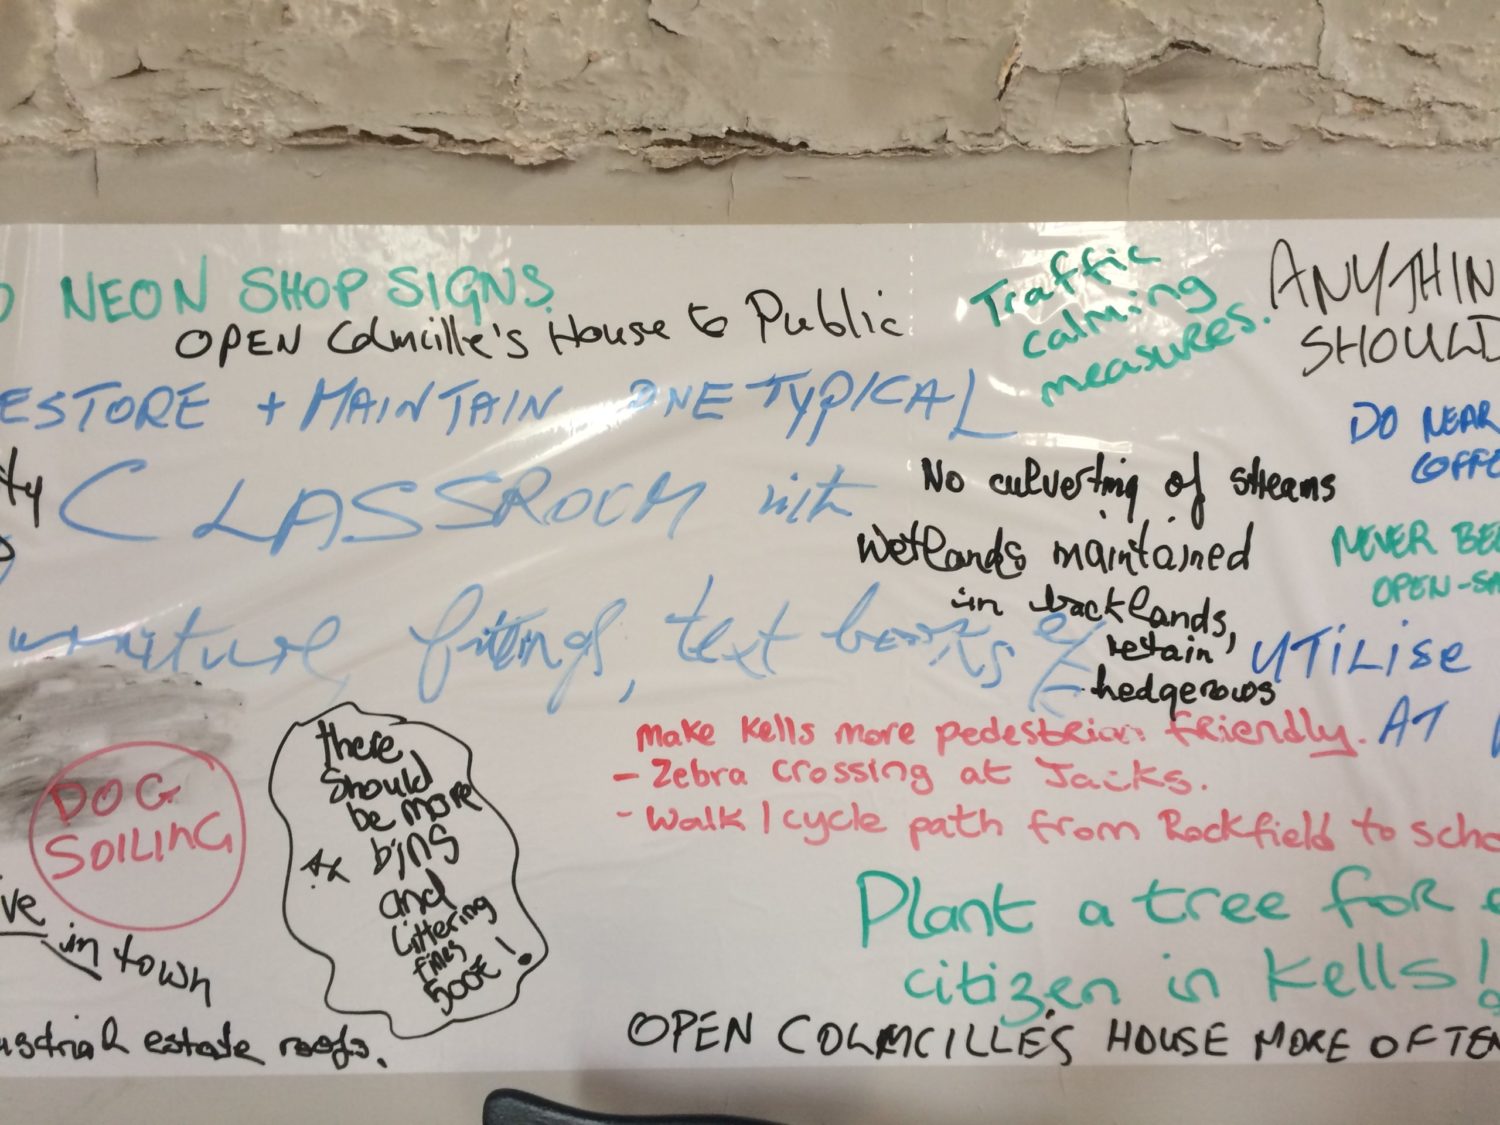 NEON SHOP SIGNS
OPEN Colmcille's House to Public
Traffic
calming
measures.
ANYTHIN
SHOULD
ESTORE + MAINTAIN ONE TYPICAL
CLASSROOM with
urniture, fittings, text books &
DO NEAR
COFFE
No culverting of streams
Wetlands maintained
in backlands,
retain
hedgerows
NEVER BEE
OPEN-SA
UTILISE
AT
make Kells more pedestrian friendly.
- Zebra crossing at Jacks.
- Walk / cycle path from Rockfield to scho
DOG
SOILING
there
should
be more
bins
and
littering
fines
500€!
ve
in town
Plant a tree for e
citizen in Kells!
ustrial estate roofs.
OPEN COLMCILLE'S HOUSE MORE OFTEN